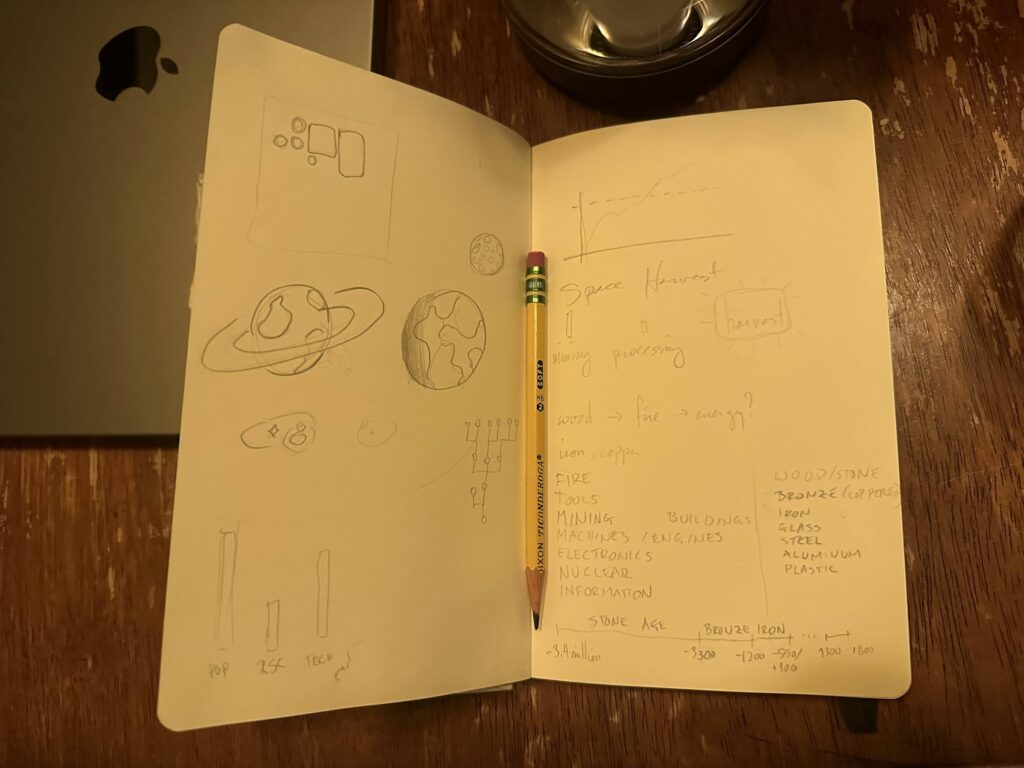 POP RSC TECH
Space Harvest
harvest
mining processing
wood → fire → energy?
iron, copper
FIRE
TOOLS
MINING BUILDINGS
MACHINES / ENGINES
ELECTRONICS
NUCLEAR
INFORMATION
WOOD/STONE
BRONZE/(COPPER)
IRON
GLASS
STEEL
ALUMINUM
PLASTIC
STONE AGE BRONZE IRON ...
-3.4 million -3300 -1200 1300 1800
DIXON TICONDEROGA® 2 HB SOFT